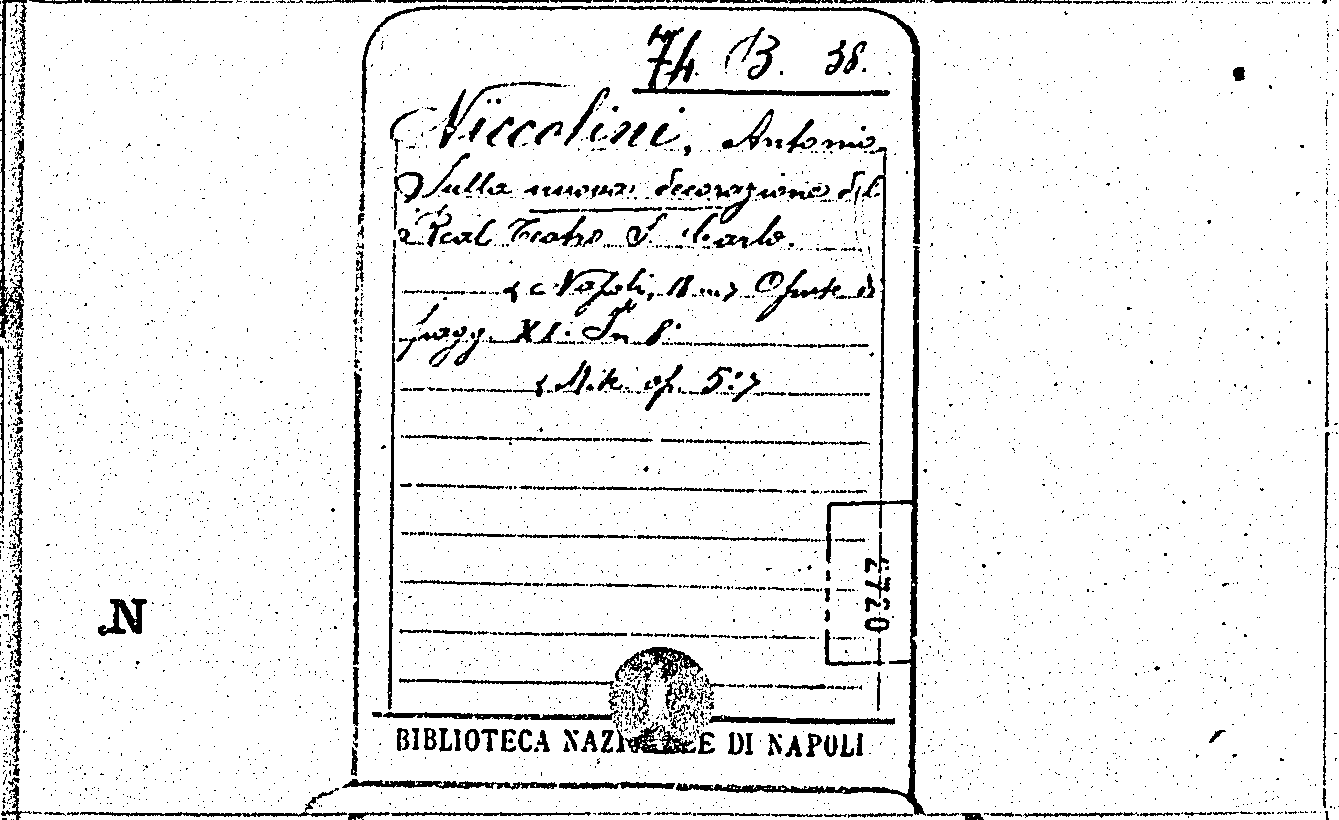 74. B. 38.
Niccolini, Antonio
Sulla nuova decorazione del
Real Teatro S. Carlo.
Napoli, 18...> Opusc. di
pagg. XI. In 8º
op. 5:>
N
BIBLIOTECA NAZIONALE DI NAPOLI